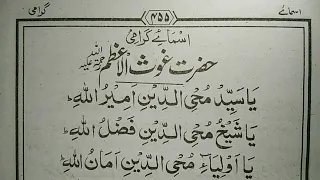 اسمائے ﴿۴۵۵﴾ گرامی
اسمائے گرامی
حضرت غوث الاعظم رحمۃ اللہ علیہ
يَا سَيِّدُ مُحْيِ الدِّيْنِ اَمِيْرُ اللهِ ط
يَا شَيْخُ مُحْيِ الدِّيْنِ فَضْلُ اللهِ ط
يَا اَوْلِيَاءُ مُحْيِ الدِّيْنِ اَمَانُ اللهِ ط